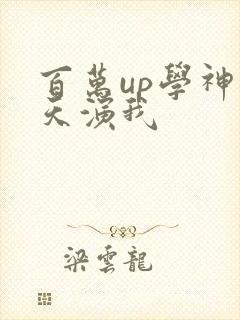 百萬up學神
天演我
梁雲龍